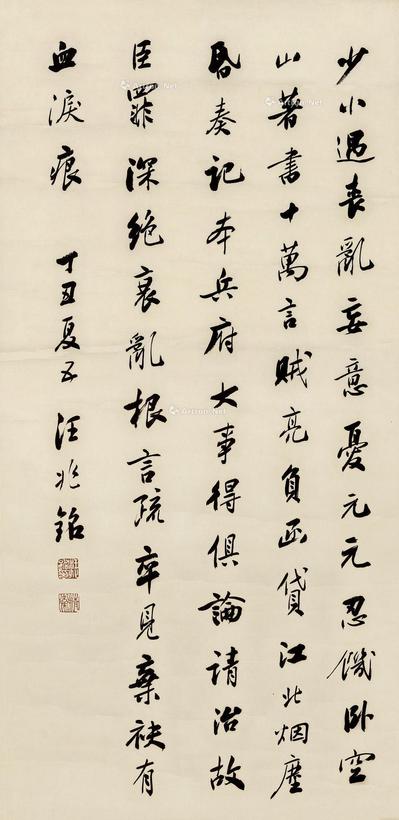 少小遇喪亂妄意憂元元忍饑臥空
山著書十萬言賊亮負函貸江北烟塵
昏奏記本兵府大事得俱論請治故
臣罪深絶衰亂根言疏卒見棄袂有
血淚痕 丁丑夏五 汪兆銘